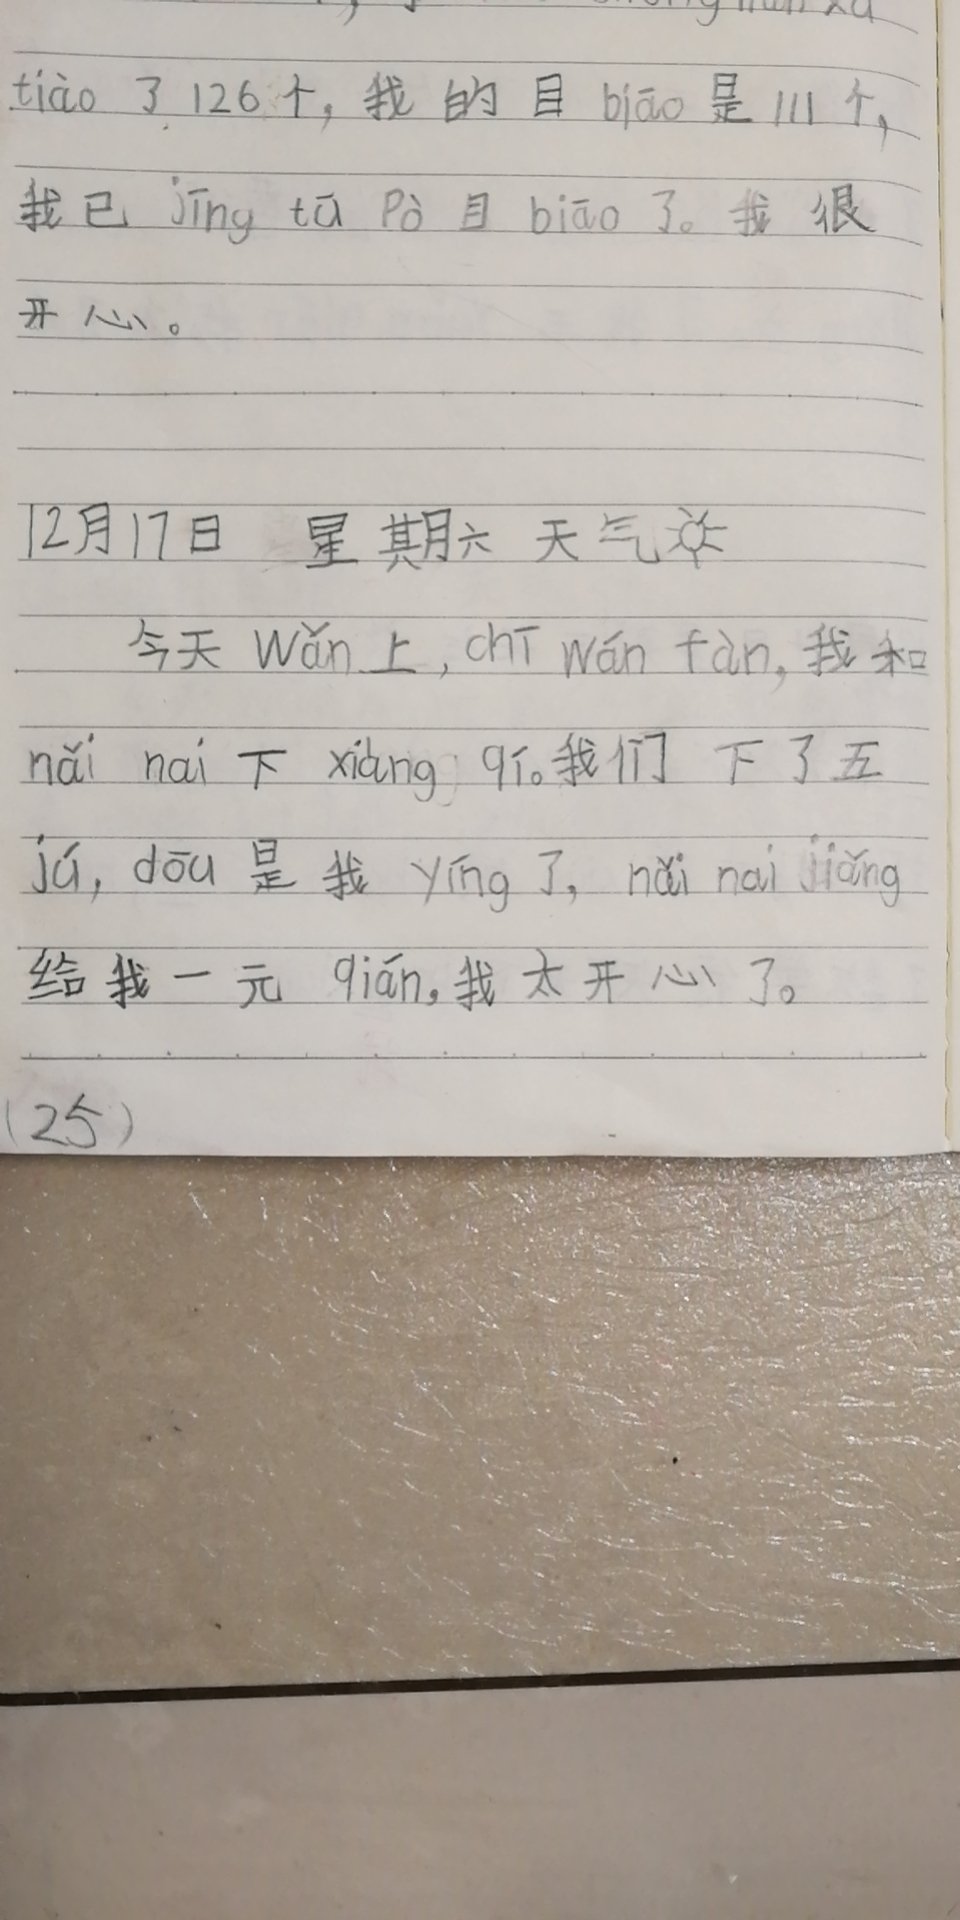 tiào 了 126个，我 的 目 biāo 是 111 个，
我 已 jīng tū Pò 目 biāo 了。我 很
开 心。
12月17日 星 期六 天 气
今天 Wǎn 上，chī wán fàn，我 和
nǎi nai 下 xiàng qí。我们 下 了 五
jú，dōu 是 我 yíng 了，nǎi nai jiǎng
给 我 一 元 qián，我 太 开 心 了。
（25）